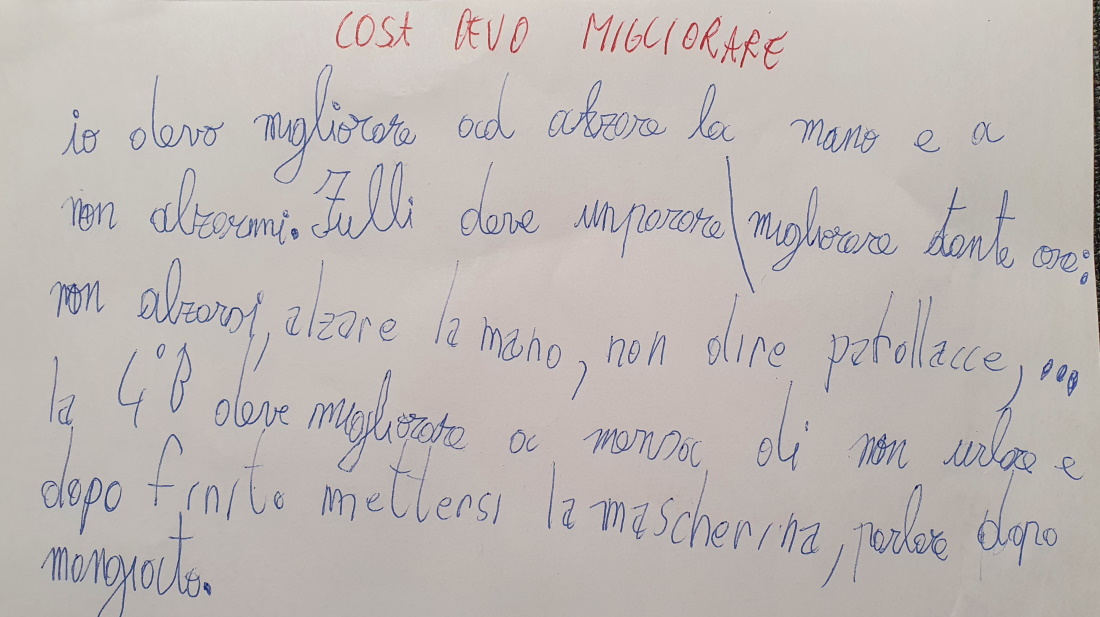 COSA DEVO MIGLIORARE
io devo migliorare ad alzare la mano e a
non alzarmi. Fulli deve imparare/migliorare tante cose:
non alzarsi, alzare la mano, non dire parollacce, ...
la 4°B deve migliorare a mensa di non urlare e
dopo finito mettersi la mascherina, parlare dopo
mangiato.